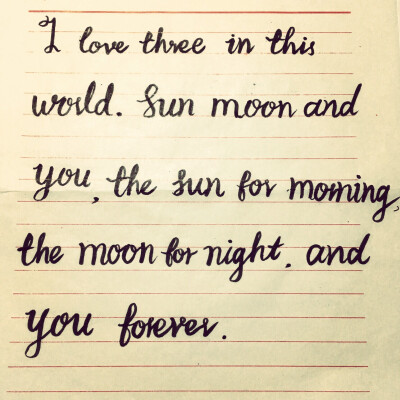 I love three in this
world. Sun moon and
you, the sun for morning,
the moon for night. and
you forever.